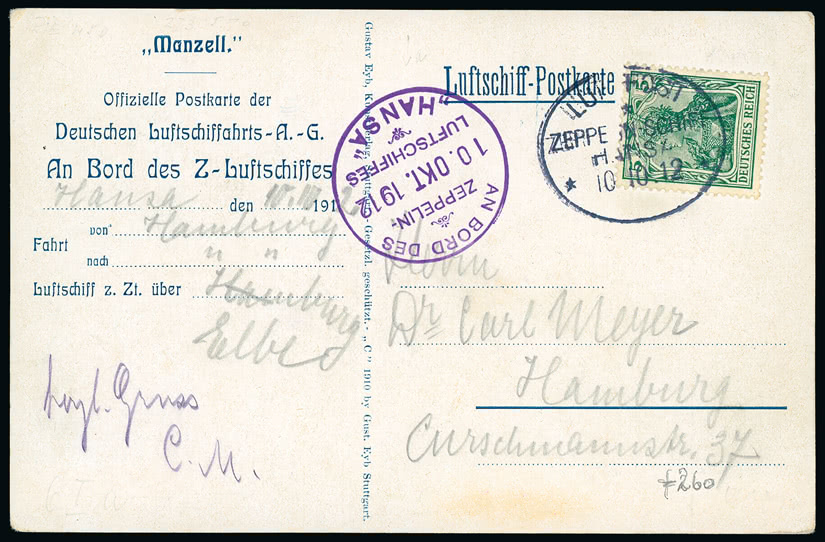 „Manzell."
Offizielle Postkarte der
Deutschen Luftschiffahrts-A.-G.
An Bord des Z-Luftschiffes
Hansa den 10. 191
von Hamburg
Fahrt
nach " "
Luftschiff z. Zt. über Hamburg
Elbe
herzl. Gruss
C. M.
Gustav Eyb, Stuttgart. Gesetzl. geschützt. - „C" 1910 by Gust. Eyb Stuttgart.
AN BORD DES
ZEPPELIN-
10. OKT. 1912
LUFTSCHIFFES
"HANSA"
Luftschiff-Postkarte
POST
HANSA
* 10 10 12 *
DEUTSCHES REICH
Herrn
Dr Carl Meyer
Hamburg
Curschmannstr. 37
£260